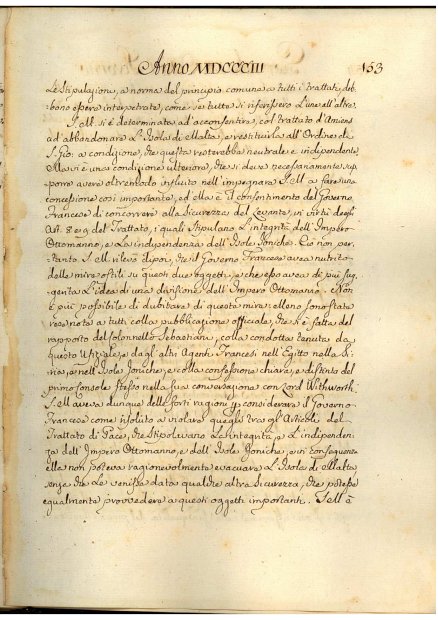 Anno MDCCCIII 153
Le Stipulazioni, a norma del principio comune a tutti i trattati, deb-
bono essere interpretate, come se tutte si riferissero l'une all'altre.
S. M. si è determinata ad acconsentire, col trattato d'Amiens
ad abbandonare L'Isola di Malta, e restituirla all'Ordine di
S. Gio: a condizione, che questa resterebbe neutrale e independente.
Ma vi è una condizione ulteriore, che si deve necessariamente sup-
porre avere oltremodo influito nell'impegnare S. M. a fare una
concessione così importante, ed ella è il consentimento del Governo
Francese di concorrere alla Sicurezza del Levante, in virtù degli
Art. 8 e 9 del Trattato, i quali Stipulano L'integrità dell'Impero
Ottomanno, e La independenza dell'Isole Joniche. Ciò non per-
tanto S. M. rilevò dipoi, che il Governo Francese aveva nutrito
delle mire ostili su questi due oggetti, e che esso aveva di più sug-
gerita L'idea di una divisione dell'Impero Ottomanno. Non
è più possibile di dubitare di queste mire: elleno sono state
rese note a tutti colla pubblicazione officiale, che si è fatta del
rapporto del Colonnello Sebastiani, colla condotta tenuta da
questo Uffiziale, e dagli altri Agenti Francesi nell'Egitto nella Si-
ria, e nell'Isole Joniche, e colla confessione chiara, e distinta del
primo Console stesso nella sua conversazione con Lord Withworth.
S. M. aveva dunque delle forti ragioni per considerare il Governo
Francese come risoluto a violare quegli tra gli Articoli del
Trattato di Pace, che Stipolavano La integrità, e L'independen-
za dell'Impero Ottomanno, e dell'Isole Joniche, e in conseguenza
ella non poteva ragionevolmente evacuare L'Isola di Malta
senza che Le venisse data qualche altra Sicurezza, che potesse
egualmente provvedere a questi oggetti importanti. S. M. è